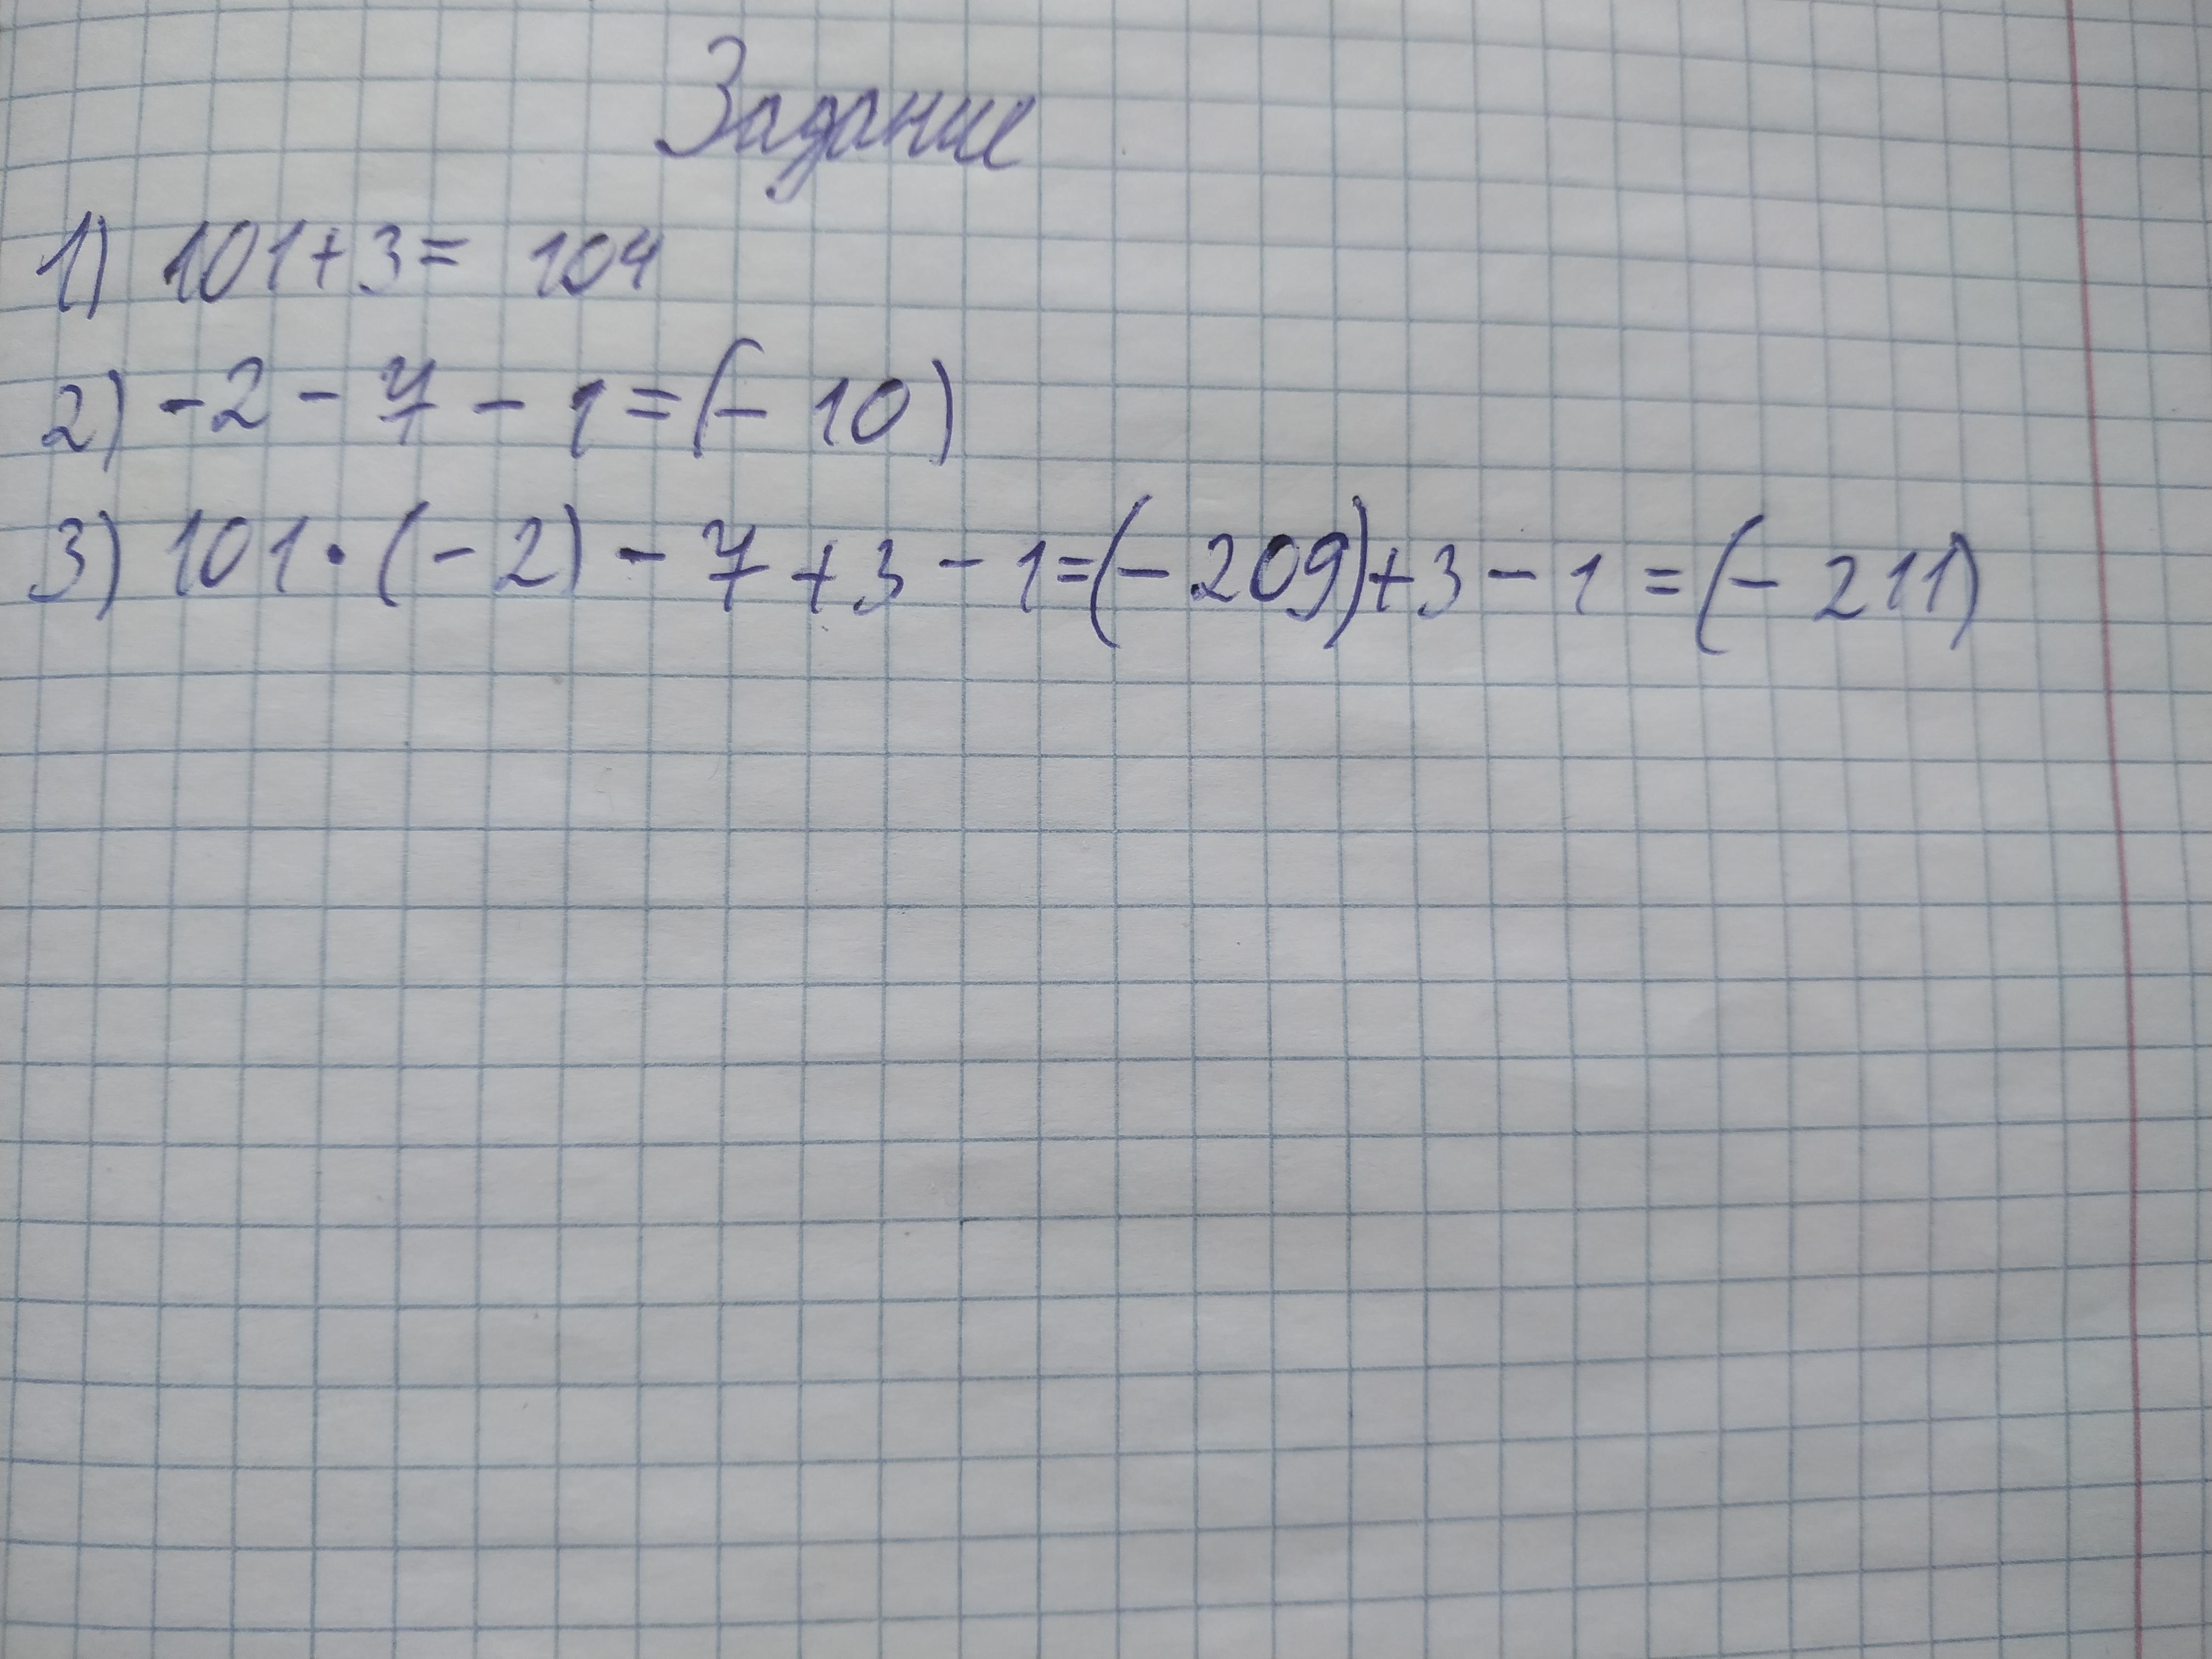 Задание
1) 101+3= 104
2) -2 - 7 - 1 = (- 10)
3) 101 · (-2) - 7 + 3 - 1 = (- 209) + 3 - 1 = (- 211)